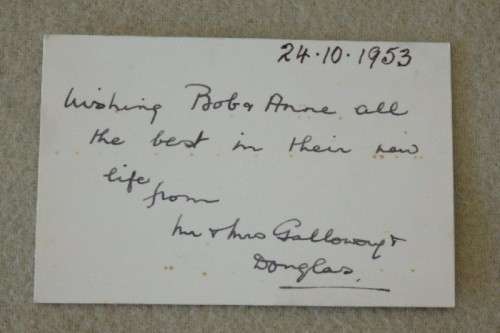 24·10·1953
Wishing Bob & Anne all
the best in their new
life
from
Mr & Mrs Galloway &
Douglas.